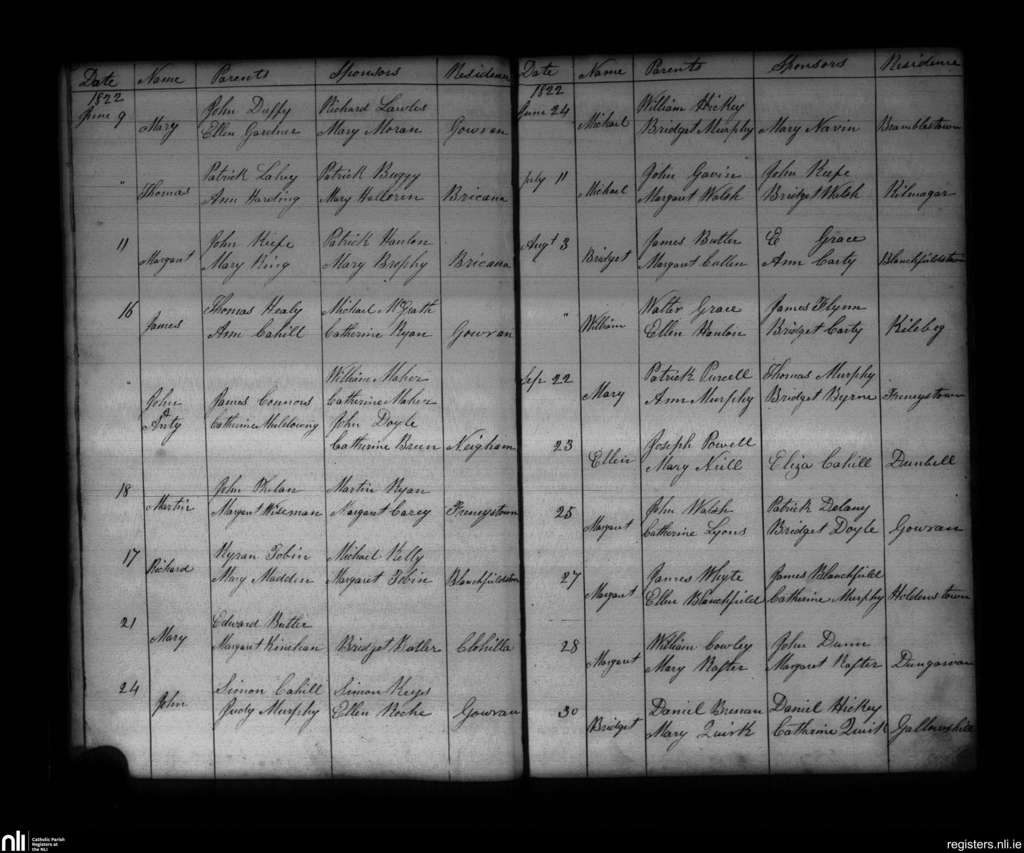 Date Name Parents Sponsors Residence
1822
June 9 Mary John Duffy Richard Lawles
Ellen Gardner Mary Moran Gowran
" Thomas Patrick Lahey Patrick Buggy
Ann Harding Mary Halloren Bricana
11 Margaret John Keefe Patrick Hanlon
Mary King Mary Brophy Bricana
16 James Thomas Healy Michael McGrath
Ann Cahill Catherine Ryan Gowran
" William Maher
John James Connors Catherine Maher
& Anty Catherine John Doyle
Catherine Breen Neigham
18 Martin John Phelan Martin Ryan
Margaret Wiseman Margaret Carey Freneystown
17 Richard Kyran Tobin Michael Kelly
Mary Madden Margaret Tobin Blanchfieldstown
21 Mary Edward Butler
Margaret Kinchan Bridget Butler Clohilla
24 John Simon Cahill Simon
Judy Murphy Ellen Roche Gowran
Date Name Parents Sponsors Residence
1822
June 24 Michael William Hickey
Bridget Murphy Mary Navin Bramblestown
July 11 Michael John Gavin John Keefe
Margaret Walsh Bridget Walsh Kilmagar
Augt 3 Bridget James Butler E Grace
Margaret Cullen Ann Carty Blanchfieldstown
" William Walter Grace James Flynn
Ellen Hanlon Bridget Carty Kilsbeg
Sep 22 Mary Patrick Purcell Thomas Murphy
Ann Murphy Bridget Byrne Freneystown
23 Ellen Joseph Powell
Mary Neill Eliza Cahill Dunbell
25 Margaret John Walsh Patrick Delany
Catherine Lyons Bridget Doyle Gowran
27 Margaret James Whyte James Blanchfield
Ellen Blanchfield Catherine Murphy Holdenstown
28 Margaret William Cowley John Dunn
Mary Rafter Margaret Rafter Dungarvan
30 Bridget Daniel Brenan Daniel Hickey
Mary Quirk Catherine Quirk Gallowshill
nli Catholic Parish
Registers at
the NLI
registers.nli.ie